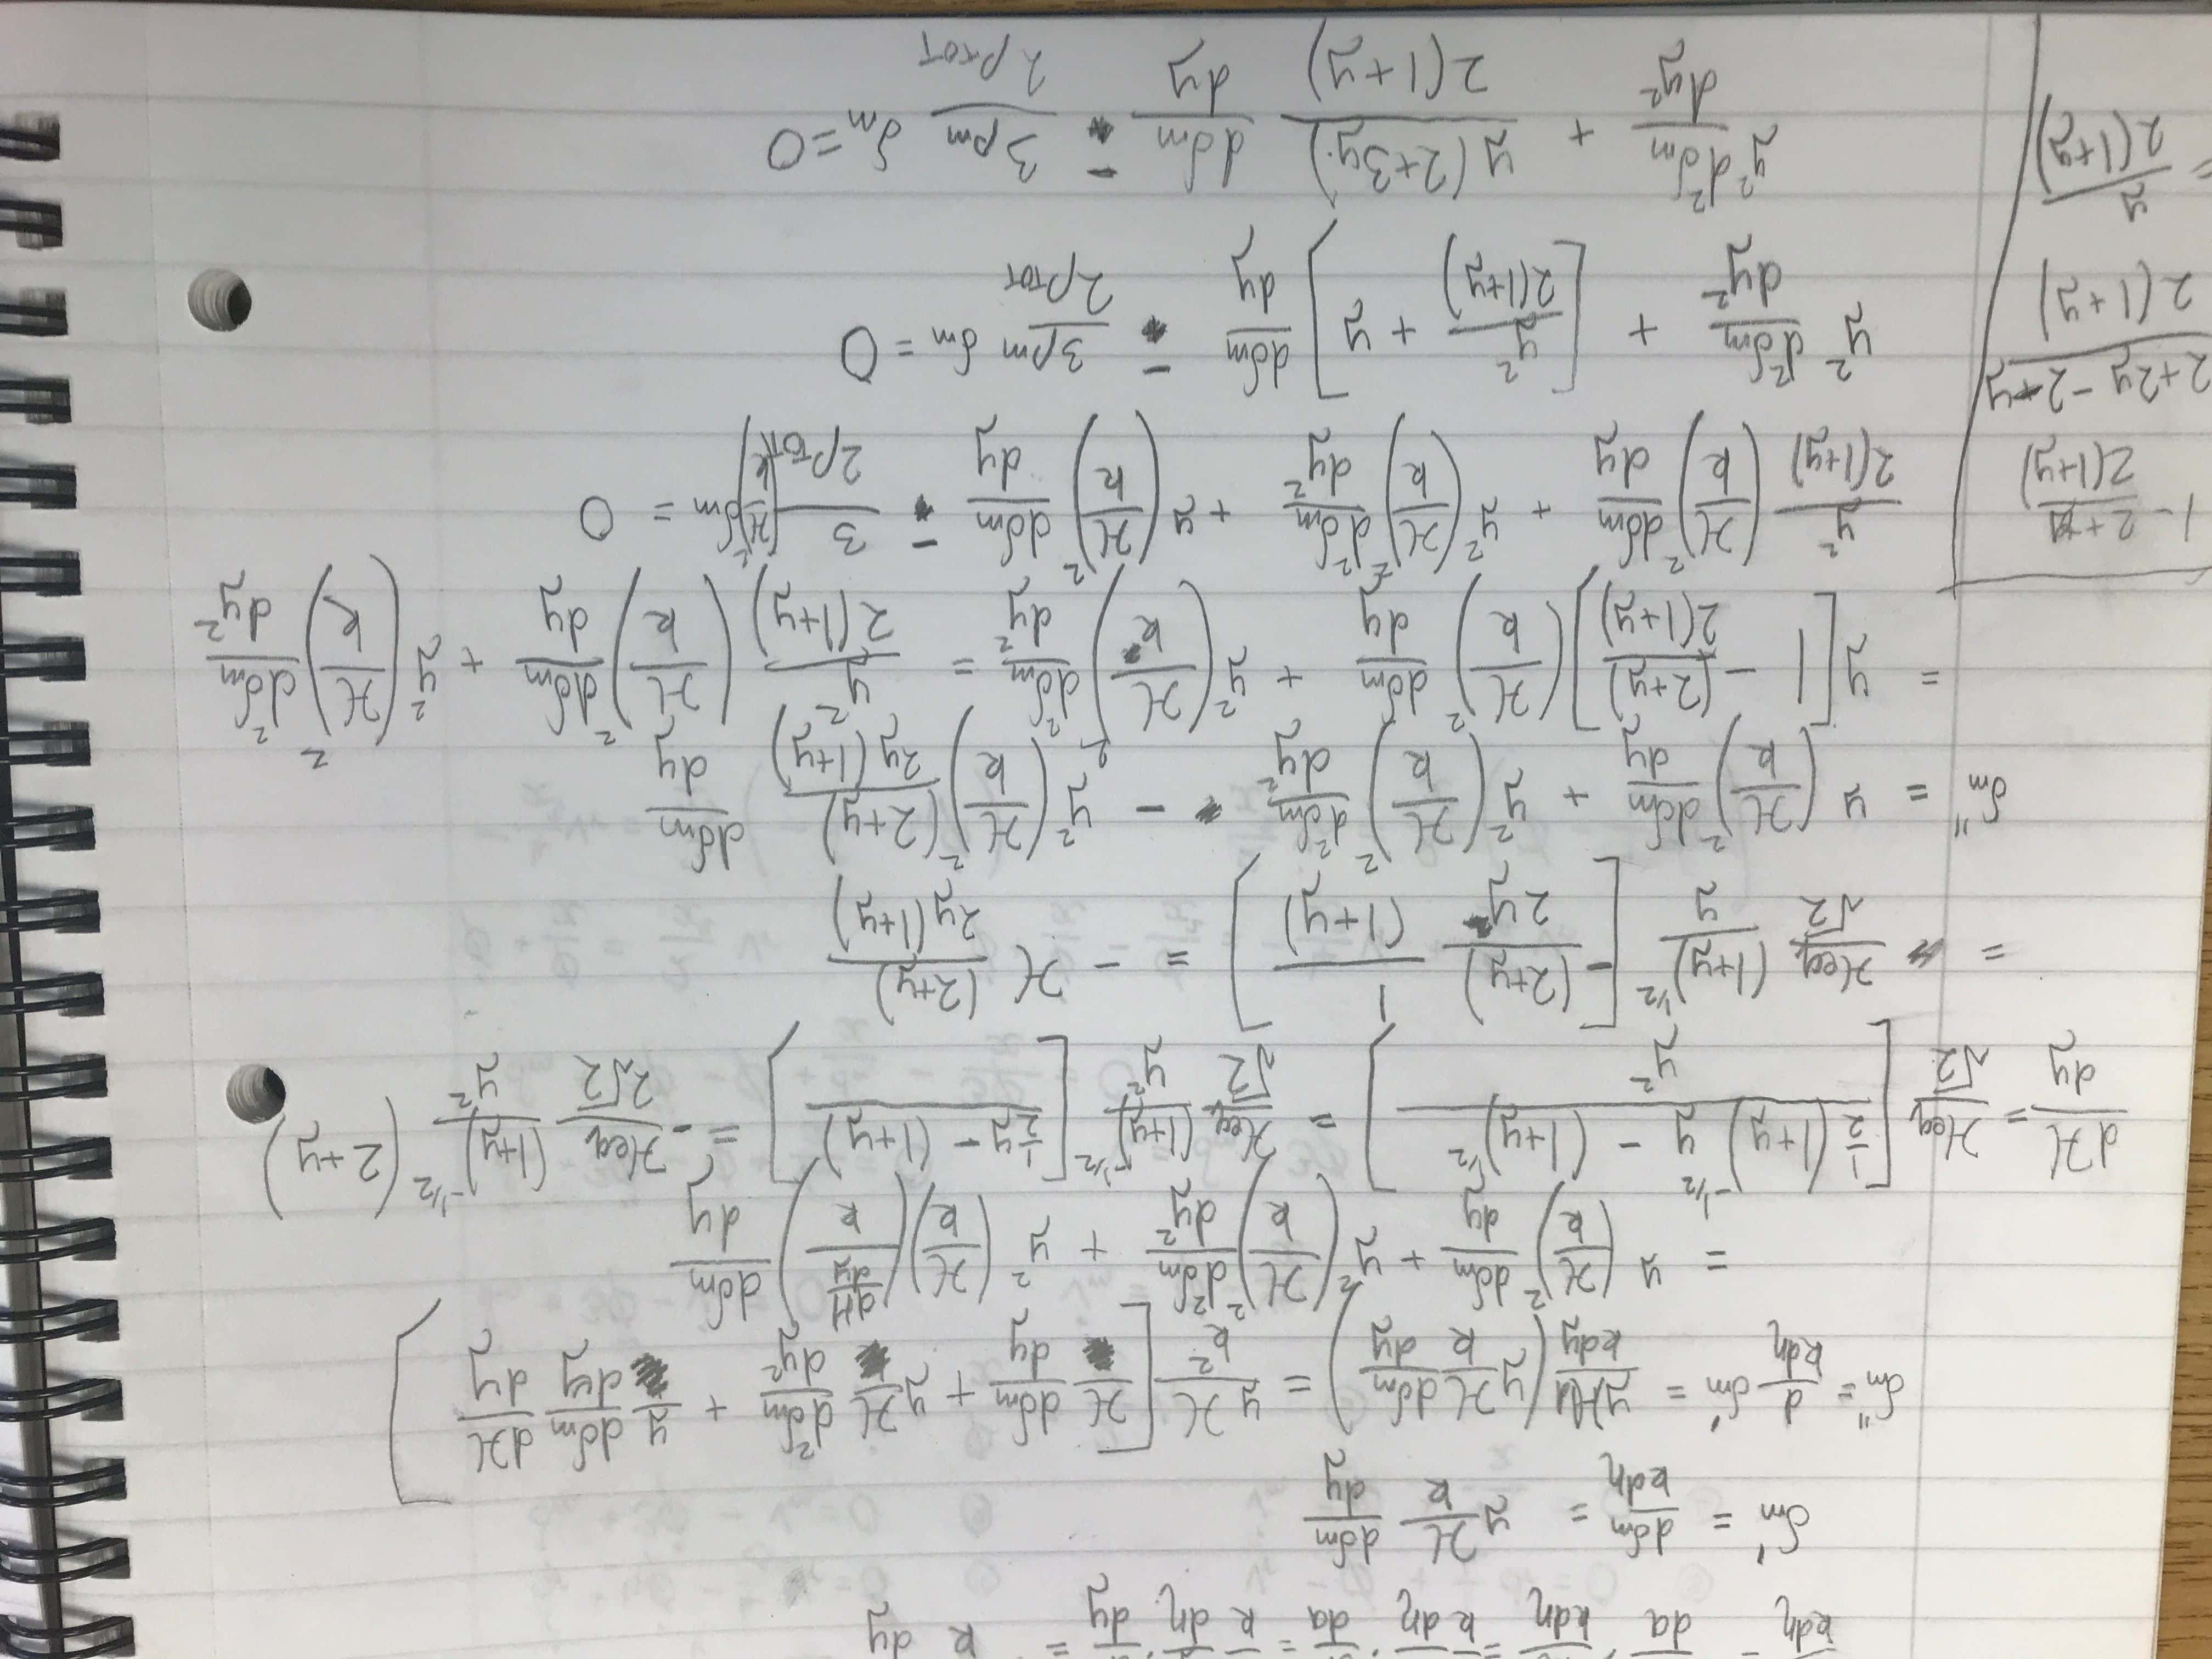 kdη = da · kdη = kdη · da = k dη · dy = k dy
δm' = dδm/kdη = y ℋ/k dδm/dy
δm'' = d/kdη δm' = yℋd/kdy (y ℋ/k dδm/dy) = yℋ/k² [ℋ dδm/dy + yℋ d²δm/dy² + y dδm/dy dℋ/dy]
= y (ℋ/k)² dδm/dy + y² (ℋ/k)² d²δm/dy² + y² (ℋ/k) (dℋ/dy / k) dδm/dy
dℋ/dy = ℋeq/√2 [(½ (1+y)^-1/2 y - (1+y)^1/2) / y²] = ℋeq/√2 (1+y)^-1/2 / y² [½y - (1+y)] = - ℋeq/2√2 (1+y)^-1/2 / y² (2+y)
= ℋeq/√2 (1+y)^1/2 / y [-(2+y)/2y 1/(1+y)] = - ℋ (2+y)/2y(1+y)
δm'' = y (ℋ/k)² dδm/dy + y² (ℋ/k)² d²δm/dy² - y² (ℋ/k)² (2+y)/2y(1+y) dδm/dy
= y [1 - (2+y)/2(1+y)] (ℋ/k)² dδm/dy + y² (ℋ/k)² d²δm/dy² = y²/2(1+y) (ℋ/k)² dδm/dy + y² (ℋ/k)² d²δm/dy²
1 - 2+y/2(1+y)
2+2y-2-y/2(1+y)
= y/2(1+y)
y²/2(1+y) (ℋ/k)² dδm/dy + y² (ℋ/k)² d²δm/dy² + y (ℋ/k)² dδm/dy - 3/2ρTOT (ℋ/k)² δm = 0
y² d²δm/dy² + [y²/2(1+y) + y] dδm/dy - 3ρm/2ρTOT δm = 0
y² d²δm/dy² + y(2+3y)/2(1+y) dδm/dy - 3ρm/2ρTOT δm = 0